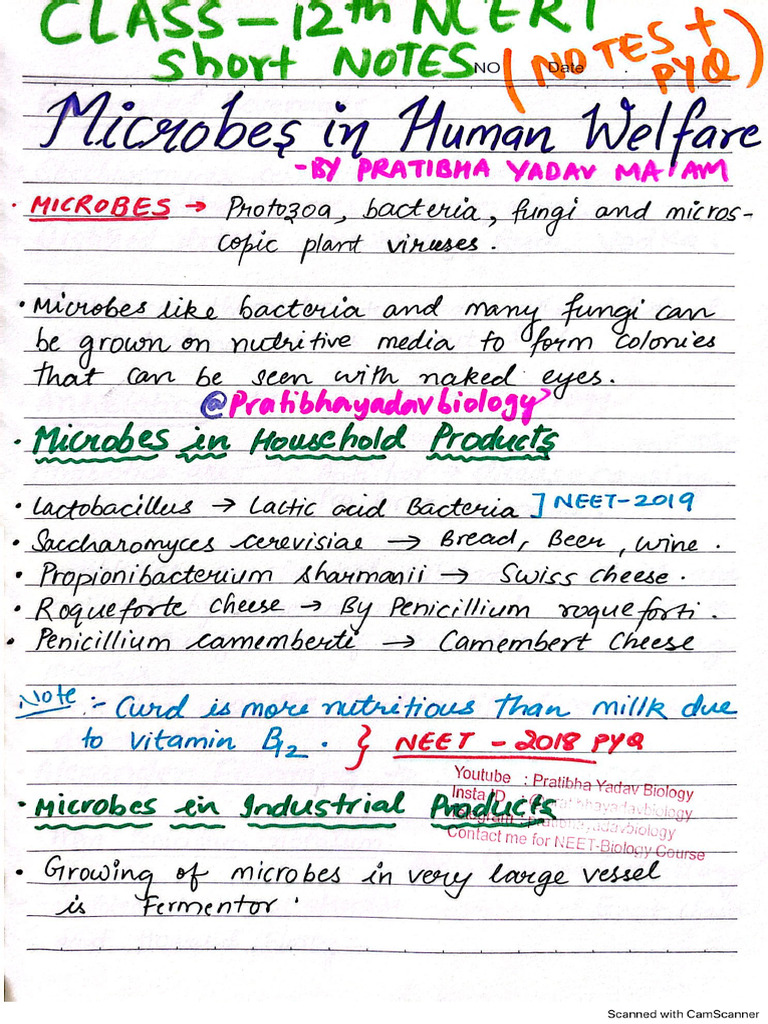 CLASS - 12th NCERT
Short NOTES
NO Date
(NOTES + PYQ)
Microbes in Human Welfare
-BY PRATIBHA YADAV MA'AM
• MICROBES → Protozoa, bacteria, fungi and micros-
copic plant viruses.
• Microbes like bacteria and many fungi can
be grown on nutritive media to form colonies
that can be seen with naked eyes.
@Pratibhayadavbiology
• Microbes in Household Products
• Lactobacillus → Lactic acid Bacteria ] NEET-2019
• Saccharomyces cerevisiae → Bread, Beer, wine.
• Propionibacterium sharmanii → Swiss cheese.
• Roqueforte cheese → By Penicillium roqueforti.
• Penicillium camemberti → Camembert Cheese
Note :- Curd is more nutritious than millk due
to vitamin B12. } NEET - 2018 PYQ
Youtube : Pratibha Yadav Biology
Insta ID : @pratibhayadavbiology
• Microbes in Industrial Products
Telegram : pratibhayadavbiology
Contact me for NEET-Biology Course
• Growing of microbes in very large vessel
is Fermentor.
Scanned with CamScanner